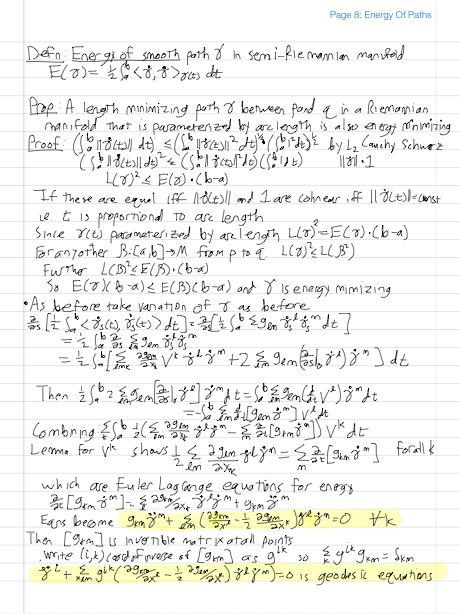 Page 8: Energy Of Paths
Defn: Energy of smooth path γ in semi-Riemannian manifold
E(γ) = ½∫ₐᵇ <γ̇, γ̇>_γ(t) dt
Prop: A length minimizing path γ between p and q in a Riemannian
manifold that is parameterized by arclength is also energy minimizing
Proof: (∫ₐᵇ ||γ̇(t)|| dt) ≤ (∫ₐᵇ ||γ̇(t)||² dt)^½ (∫ₐᵇ 1² dt)^½ by L₂ Cauchy Schwarz
(∫ₐᵇ ||γ̇(t)|| dt)² ≤ (∫ₐᵇ ||γ̇(t)||² dt)(∫ₐᵇ 1 dt) ||γ̇|| · 1
L(γ)² ≤ E(γ) · (b-a)
If these are equal iff ||γ̇(t)|| and 1 are colinear iff ||γ̇(t)|| = const
i.e. t is proportional to arc length
Since γ(t) parameterized by arclength L(γ)² = E(γ) · (b-a)
For any other β: [a,b] → M from p to q L(γ)² ≤ L(β²)
Further L(β)² ≤ E(β) · (b-a)
So E(γ)(b-a) ≤ E(β)(b-a) and γ is energy mimizing
• As before take variation of γ as before
∂/∂s [½∫ₐᵇ <γ̇ₛ(t), γ̇ₛ(t)> dt] = ∂/∂s [½∫ₐᵇ Σ_lm g_lm γ̇ₛˡ γ̇ₛᵐ dt]
= ½∫ₐᵇ ∂/∂s Σ_lm g_lm γ̇ₛˡ γ̇ₛᵐ
= ½∫ₐᵇ [Σ_lmk ∂g_lm/∂xᵏ Vᵏ γ̇ˡ γ̇ᵐ + 2 Σ_lm g_lm (∂/∂s|₀ γ̇ˡ) γ̇ᵐ] dt
Then ½∫ₐᵇ 2 Σ_lm g_lm [∂/∂s|₀ γ̇ˡ] γ̇ᵐ dt = ∫ₐᵇ Σ_lm g_lm (d/dt Vˡ) γ̇ᵐ dt
= -∫ₐᵇ Σ_lm d/dt [g_lm γ̇ᵐ] Vˡ dt
Combining Σ_k ∫ₐᵇ ½ (Σ_lm ∂g_lm/∂xᵏ γ̇ˡ γ̇ᵐ - Σ_m ∂/∂t [g_km γ̇ᵐ]) Vᵏ dt
Lemma for Vᵏ shows ½ Σ_lm ∂g_lm/∂x_k γ̇ˡ γ̇ᵐ = Σ_m ∂/∂t [g_km γ̇ᵐ] for all k
which are Euler Lagrange equations for energy
∂/∂t [g_km γ̇ᵐ] = Σ_l ∂g_km/∂xˡ γ̇ˡ γ̇ᵐ + g_km γ̈ᵐ
Eqns become g_km γ̈ᵐ + Σ_lm (∂g_km/∂xˡ - ½ ∂g_lm/∂xᵏ) γ̇ˡ γ̇ᵐ = 0 ∀k
Then [g_km] is invertible matrix at all points
Write (i,k) coord of inverse of [g_km] as gⁱᵏ so Σ_k gⁱᵏ g_km = δ_km
γ̈ⁱ + Σ_klm gⁱᵏ (∂g_km/∂xˡ - ½ ∂g_lm/∂xᵏ) γ̇ˡ γ̇ᵐ) = 0 is geodesic equations